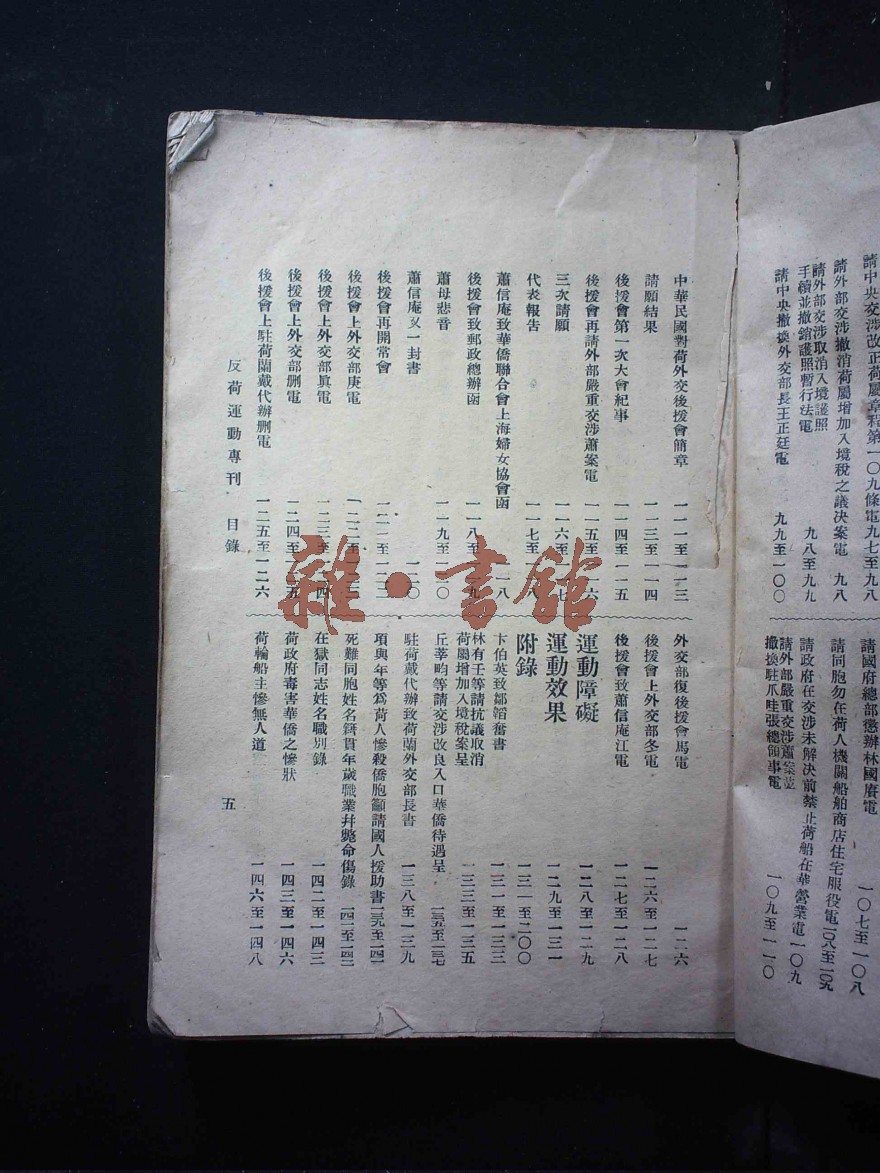 請中央交涉改正荷屬章程第一〇九條電九七至九八
請外部交涉撤消荷屬增加入境稅之議決案電 九八
請外部交涉取消入境護照
手續並撤銷護照暫行法電 九八至九九
請中央撤換外交部長王正廷電 九九至一〇〇
請國府總部懲辦林國賡電 一〇七至一〇八
請同胞勿在荷人機關船舶商店住宅服役電一〇八至一〇九
請政府在交涉未解決前禁止荷船在華營業電一〇九
請外部嚴重交涉蕭案並
撤換駐爪哇張總領事電 一〇九至一一〇
中華民國對荷外交後援會簡章 一一一至一一三
請願結果 一一三至一一四
後援會第一次大會紀事 一一四至一一五
後援會再請外部嚴重交涉蕭案電 一一五至一一六
三次請願 一一六至一一七
代表報告 一一七至一一八
蕭信庵致華僑聯合會上海婦女協會函 一一八
後援會致郵政總辦函 一一八至一一九
蕭母悲音 一一九至一二〇
蕭信庵又一封書 一二〇
後援會再開常會 一二一至一二二
後援會上外交部庚電 一二二至一二三
後援會上外交部眞電 一二三至一二四
後援會上外交部删電 一二四至一二五
後援會上駐荷蘭戴代辦删電 一二五至一二六
外交部復後援會馬電 一二六
後援會上外交部冬電 一二六至一二七
後援會致蕭信庵江電 一二七至一二八
運動障礙 一二八至一二九
運動效果 一二九至一三一
附錄 一三一至二〇〇
卞伯英致鄒韜奮書 一三一至一三三
林有壬等請抗議取消
荷屬增加入境稅案呈 一三三至一三五
丘莘畇等請交涉改良入口華僑待遇呈 一三五至一三七
駐荷戴代辦致荷蘭外交部長書 一三八至一三九
項與年等爲荷人慘殺僑胞籲請國人援助書一三九至一四一
死難同胞姓名籍貫年歲職業幷斃命傷錄 一四一至一四二
在獄同志姓名職別錄 一四二至一四三
荷政府毒害華僑之慘狀 一四三至一四六
荷輪船主慘無人道 一四六至一四八
反荷運動專刊 目錄 五
雜·書館